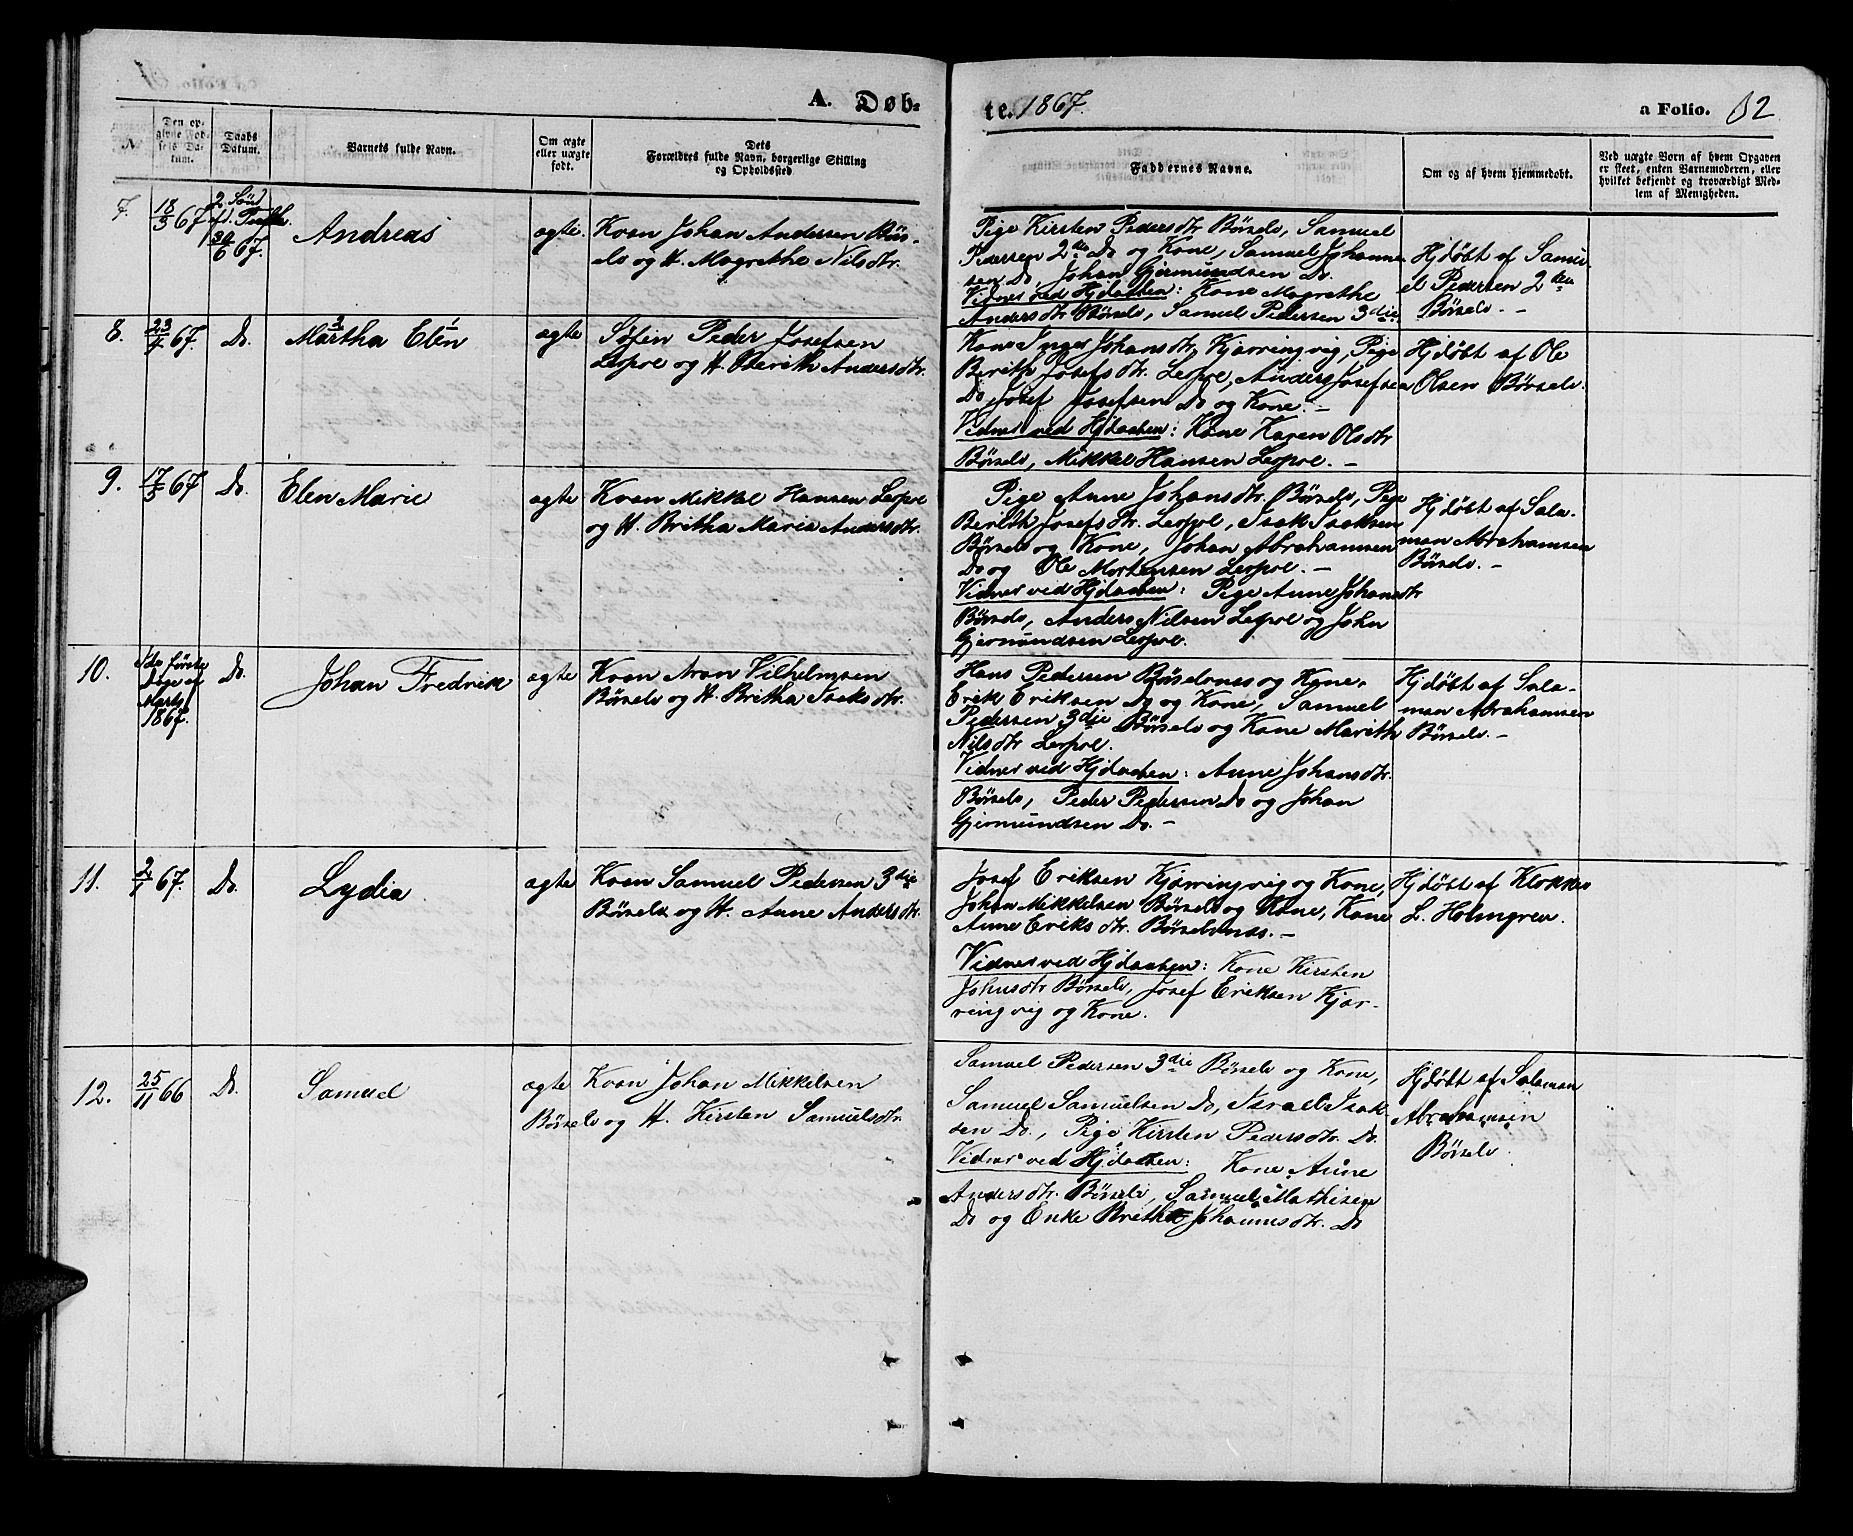 A. Døb-
te. 1867.
a Folio. 62
№
Den op-
givne Fød-
sels Da-
tum.
Daabs
Datum.
Barnets fulde Navn.
Om ægte
eller uægte
født.
Dets
Forældres fulde Navn, borgerlige Stilling
og Opholdssted.
Faddernes Navne.
Om og af hvem hjemmedøbt.
Ved uægte Børn af hvem Opgaven
er skeet, enten Barnemoderen, eller
hvilket bekjendt og troværdigt Med-
lem af Menigheden.
7.
18/3 67.
2. Sønd
30/6 67.
Andreas
ægte.
Kvæn Johan Andersen Børs-
elv og H. Magrethe Nilsdtr.
Pige Kirsten Pedersdtr. Børselv, Samuel
Pedersen 2den Do og Kone, Samuel Johanne-
sen Do, Johan Gjermundsen Do.
Vidner ved Hjdaaben: Kone Magrethe
Andersdtr Børselv, Samuel Pedersen 3die.
Hjdøbt af Samu-
el Pedersen 2den
Børselv. -
8.
67.
Do.
Martha Elen
ægte
Søfin Peder Josefsen
Lerpol og H. Berith Andersdtr.
Kone Inger Johansdtr, Kjærringvig, Pige
Berith Josefsdtr. Lerpol, Anders Josefsen
Do, Josef Josefsen Do og Kone. -
Vidner ved Hjdaaben: Kone Karen Olsdtr
Børselv, Mikkel Hansen Lerpol. -
Hjdøbt af Ole
Olsen Børselv.
9.
17/3 67
Do.
Elen Marie
ægte
Kvæn Mikkel Hansen Lerpol
og H. Britha Maria Andersdtr.
Pige Anne Johansdtr. Børselv, Pige
Berith Josefsdtr. Lerpol, Isak Isaksen
Børselv og Kone, Johan Abrahamsen
Do og Ole Mortensen Lerpol. -
Vidner ved Hjdaaben: Pige Anne Johansdtr
Børselv, Anders Nilsen Lerpol og John
Gjermundsen Lerpol.
Hjdøbt af Sala-
man Abrahamsen
Børselv. -
10.
første
Dage af
Marts
1867.
Do.
Johan Fredrik
ægte
Kvæn Aron Vilhelmsen
Børselv og H. Britha Isaksdtr.
Hans Pedersen Børselvnæs og Kone,
Erik Eriksen Do og Kone, Samuel
Pedersen 3die Børselv og Kone Marith
Nilsdtr Lerpol.
Vidner ved Hjdaaben: Anne Johansdtr.
Børselv, Peder Pedersen Do og Johan
Gjermundsen Do. -
Hjdøbt af Sala-
man Abrahamsen
Børselv. -
11.
2/1 67.
Do.
Lydia.
ægte
Kvæn Samuel Pedersen 3die
Børselv og H. Anne Andersdtr.
Josef Eriksen Kjærringvig og Kone,
Johan Mikkelsen Børselv og Kone, Kone
Anne Eriksdtr. Børselvnæs. -
Vidner ved Hjdaaben: Kone Kirsten
Johnsdtr Børselv, Josef Eriksen Kjær-
ringvig og Kone.
Hjdøbt af Klokker
L. Holmgren.
12.
25/11 66
Do.
Samuel
ægte
Kvæn Johan Mikkelsen
Børselv og H. Kirsten Samuelsdtr.
Samuel Pedersen 3die Børselv og Kone,
Samuel Samuelsen Do, Israel Isak-
sen Do., Pige Kirsten Pedersdtr. Do.
Vidner ved Hjdaaben: Kone Anne
Andersdtr. Børselv, Samuel Mathisen
Do og Enke Britha Johannesdtr. Do
Hjdøbt af Salaman
Abrahamsen
Børselv.